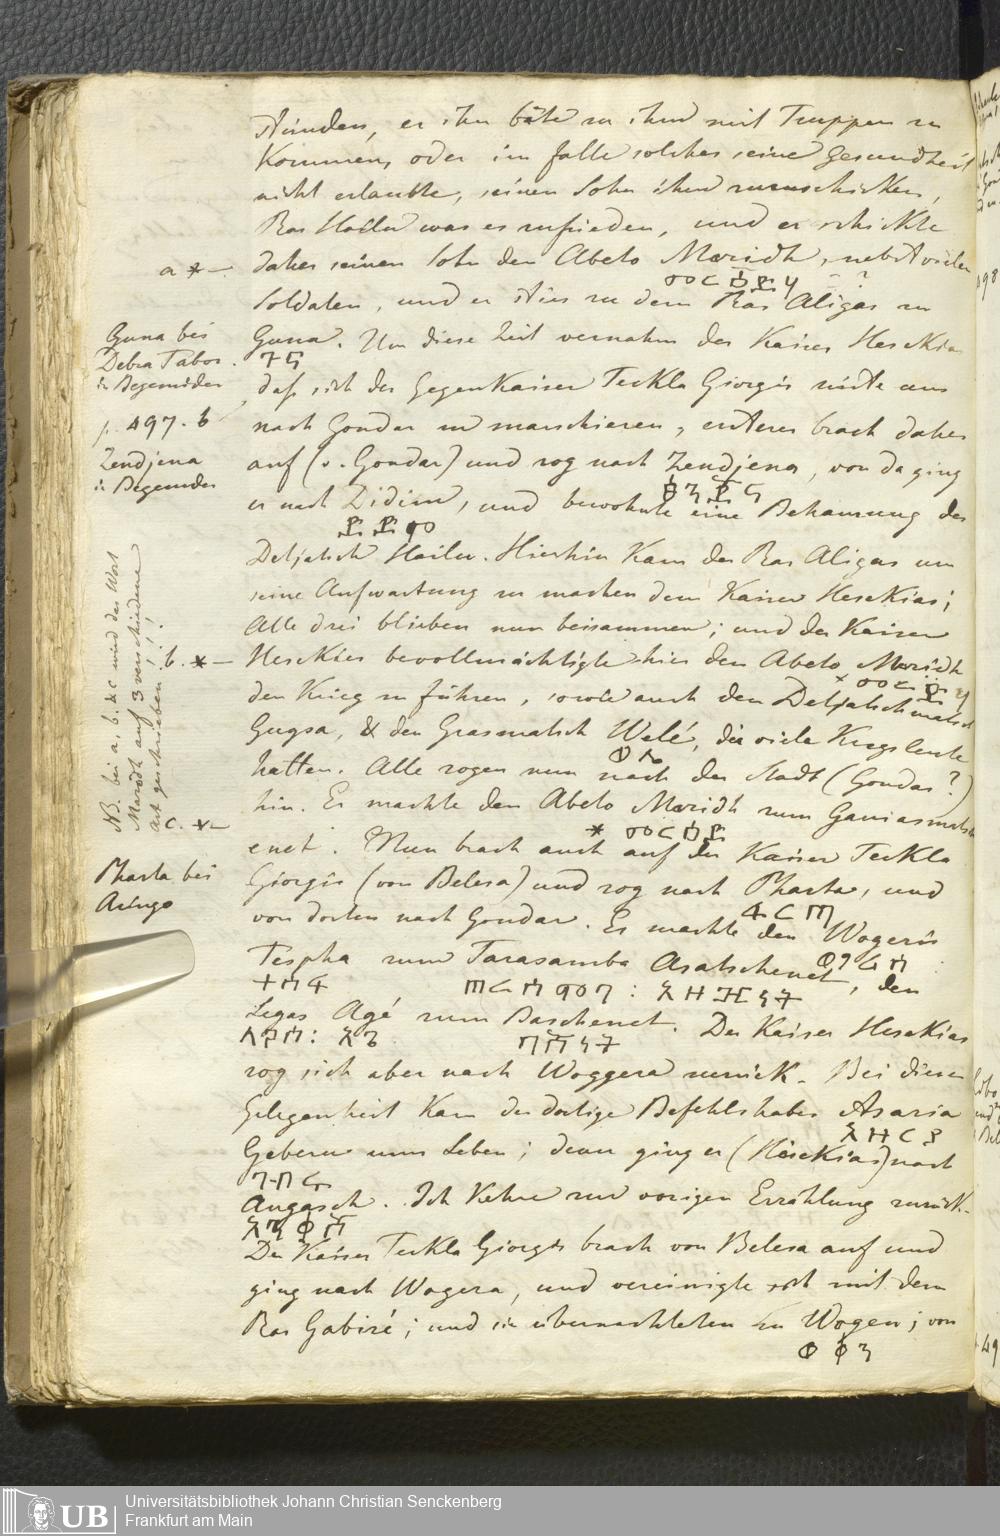 stünden, er ihn bäte zu ihm mit Truppen zu
kommen, oder im falle solches seine Gesundheit
nicht erlaubte, seinen Sohn ihm zuzuschicken,
Ras Hailu was es zufrieden, und er schickte
a *— daher seinen Sohn den Abeto Maridh, nebst vielen
Soldaten, und er sties zu dem Ras Aligas zu
Guna bei
Debra Tabor
in Begemider
Guna. Um diese Zeit vernahm der Kaiser Heskias
ጉና
daß sich der Gegenkaiser Teckla Giorgis rüste um
p. 497. b
nach Gondar zu marschieren, ersterer brach daher
Zendjena
in Begemder
auf (v. Gondar) und zog nach Zendjena, von da ging
er nach Zidim, und bewohnte eine Behausung des
Detjatsch Hailu. Hierhin kam der Ras Aligas um
seine Aufwartung zu machen dem Kaiser Heskias;
Alle drei blieben nun beisammen; und der Kaiser
b. *— Heskias bevollmächtigte hier den Abeto Maridh
den Krieg zu führen, sowie auch den Detjatschmatsch
Gugsa, & den Grasmatsch Welé, die viele Kriegsleute
ወሌ
hatten. Alle zogen nun nach der Stadt (Gondar?)
NB. bei a, b. & c wird das Wort
Maridh auf 3 verschiedene
art geschrieben!!!
c. *—
hin. Er machte den Abeto Maridh zum
enet. Nun brach auch auf der Kaiser Teckla
Pharta bei
Aringo
Giorgis (von Belesa) und zog nach Pharta, und
ፋርጣ
von dorten nach Gondar. Er machte den Wogeris
Tespha zum Tarasamba Asatschenet, den
Legas Agé zum Baschenet. Der Kaiser Heskias
zog sich aber nach Woggera zurück. Bei dieser
Gelegenheit kam der dortige Befehlshaber Asaria
አዛርያ
Geberu ums Leben; dann ging er (Heskias) nach
ገብሩ
Angasch. Ich kehre zur vorigen Erzählung zurück.
Der Kaiser Teckla Giorgis brach von Belesa auf und
ging nach Wogera, und vereinigte sich mit dem
Ras Gabiré; und sie übernachteten zu Wogen; von
ወቀን
UB
Universitätsbibliothek Johann Christian Senckenberg
Frankfurt am Main